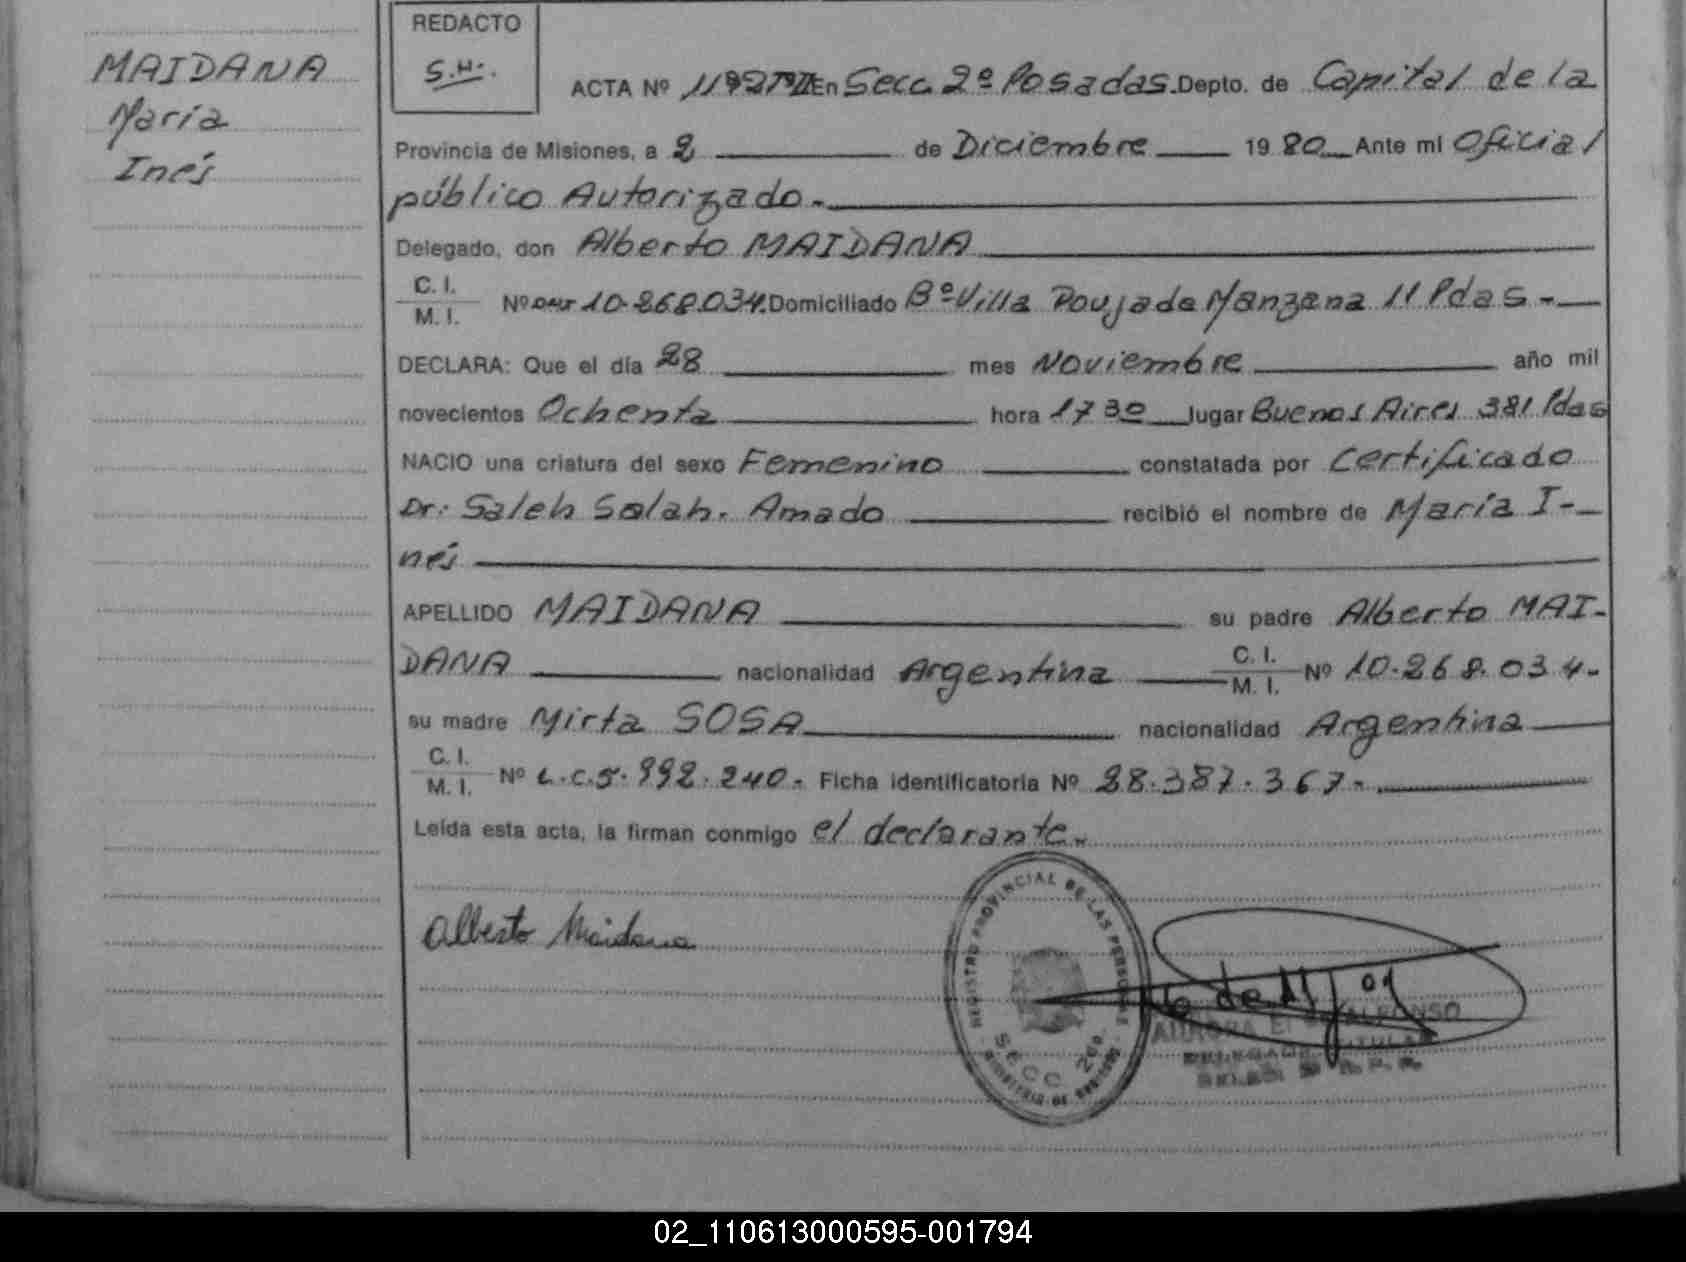 MAIDANA
María
Inés
REDACTO
S.H.
ACTA Nº En Secc. 2º Posadas. Depto. de Capital de la
Provincia de Misiones, a 2 de Diciembre 1980 Ante mí Oficial
público Autorizado.-
Delegado, don Alberto MAIDANA
C. I.
M. I. Nº 10.268.034. Domiciliado Bº Villa Poujade Manzana 11 Pdas.-
DECLARA: Que el día 28 mes Noviembre año mil
novecientos Ochenta hora 17 30 lugar Buenos Aires 381 Pdas
NACIO una criatura del sexo Femenino constatada por Certificado
Dr: Saleh Salah. Amado recibió el nombre de María I-
nés
APELLIDO MAIDANA su padre Alberto MAI-
DANA nacionalidad Argentina C. I. M. I. Nº 10.268.034.
su madre Mirta SOSA nacionalidad Argentina
C. I.
M. I. Nº L.C.5.992.240.- Ficha identificatoria Nº 28.387.367.-
Leída esta acta, la firman conmigo el declarante.-
Alberto Maidana
REGISTRO PROVINCIAL DE LAS PERSONAS
SECC. 2da.
02_110613000595-001794